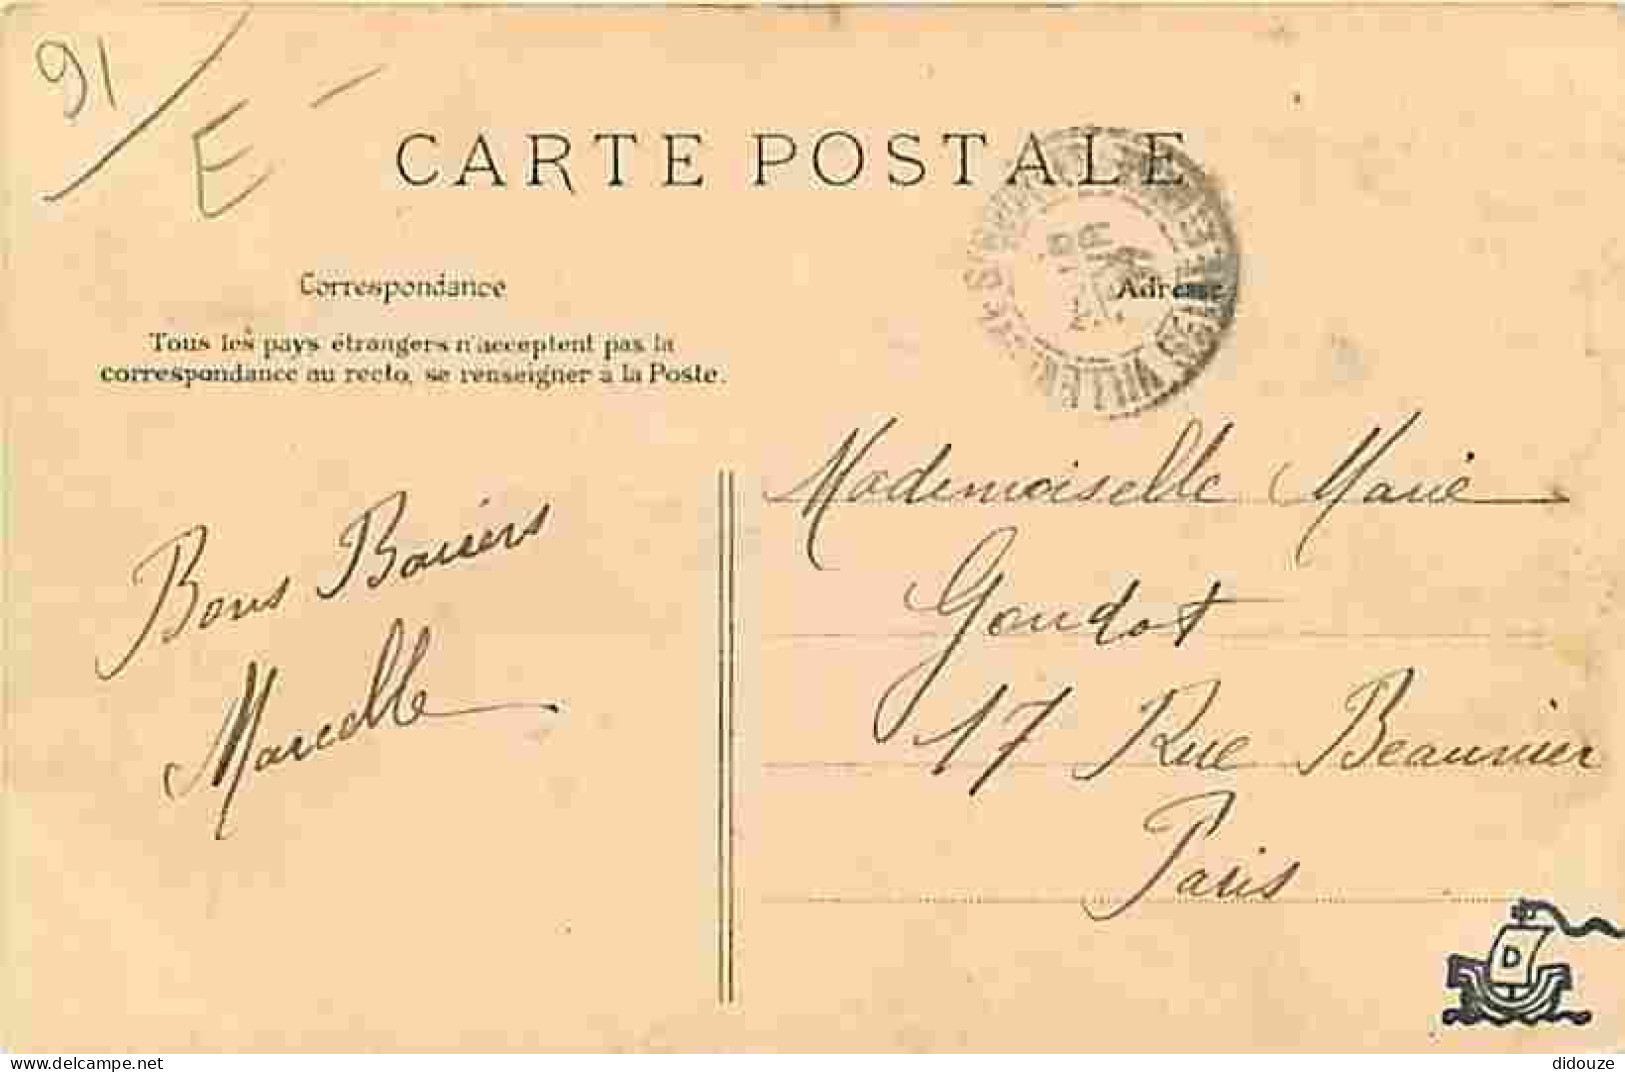 91
E -
CARTE POSTALE
Correspondance
Adresse
Tous les pays étrangers n'acceptent pas la
correspondance au recto, se renseigner à la Poste.
Mademoiselle Marie
Goudot
17 Rue Beaunier
Paris
Bons Baisers
Marcelle
D
didouze